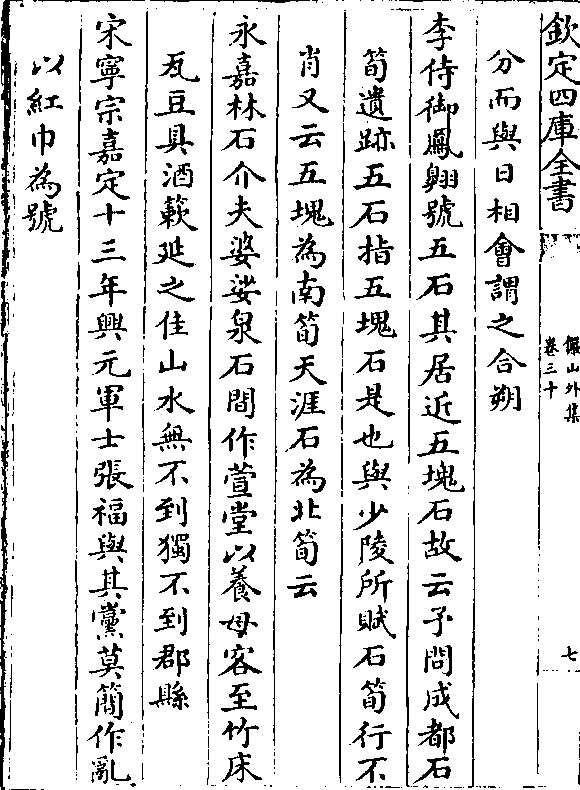 欽定四庫全書
儼山外集
卷三十
七
分而與日相會謂之合朔
李侍御鳳翱號五石其居近五塊石故云予問成都石
筍遺跡五石指五塊石是也與少陵所賦石筍行不
肖又云五塊為南筍天涯石為北筍云
永嘉林石介夫婆娑泉石間作萱堂以養母客至竹床
瓦豆具酒蔌延之佳山水無不到獨不到郡縣
宋寧宗嘉定十三年興元軍士張福與其黨莫簡作亂
以紅巾為號